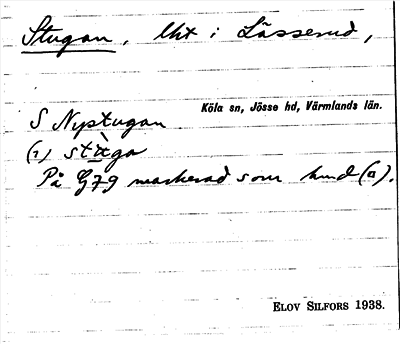 Stugan, lht i Lässerud,
Köla sn, Jösse hd, Värmlands län.
S Nystugan
(1) stùga
På G79 markerad som hmd (¤).
ELOV SILFORS 1938.